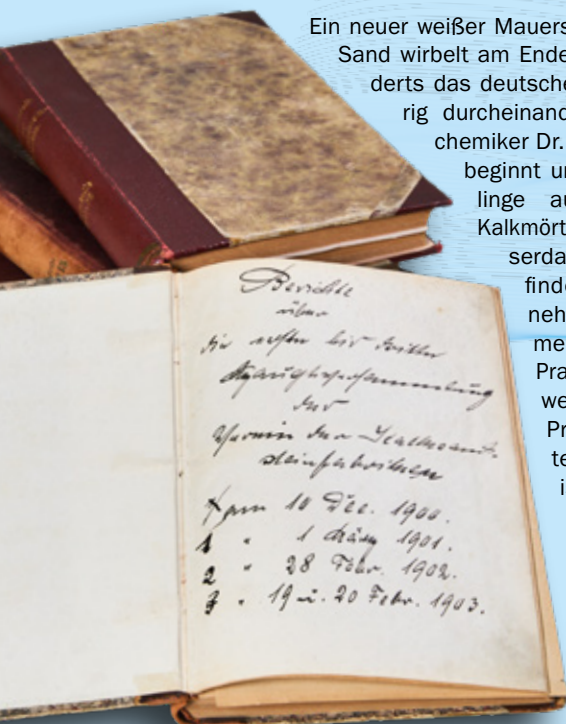 Ein neuer weißer Mauers
Sand wirbelt am Ende
derts das deutsche
rig durcheinand
chemiker Dr.
beginnt
linge au
Kalkmört
serda
finde
neh
me
Pra
we
Pr
te
Berichte
über
die erste bis dritte
Hauptversammlung
der
Verein der Kalksand-
steinfabriken
am 10 Dec. 1900.
1 " 1 März 1901.
2 " 28 Febr. 1902.
3 " 19 u. 20 Febr. 1903.